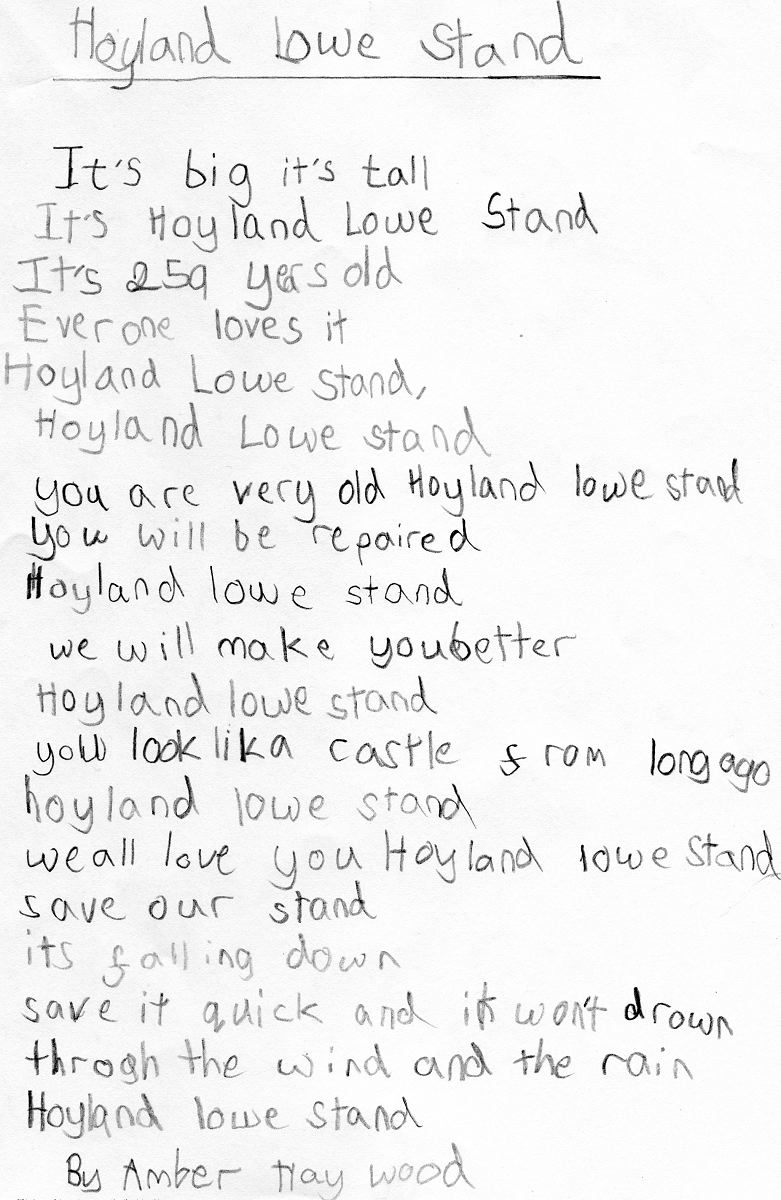 Hoyland Lowe Stand
It's big it's tall
It's Hoyland Lowe Stand
It's 259 yers old
Everone loves it
Hoyland Lowe Stand,
Hoyland Lowe stand
you are very old Hoyland lowe stand
you will be repaired
Hoyland lowe stand
we will make youbetter
Hoyland lowe stand
you look lika castle from long ago
hoyland lowe stand
we all love you Hoyland lowe Stand
save our stand
its falling down
save it quick and it won't drown
throgh the wind and the rain
Hoyland lowe stand
By Amber Hay wood